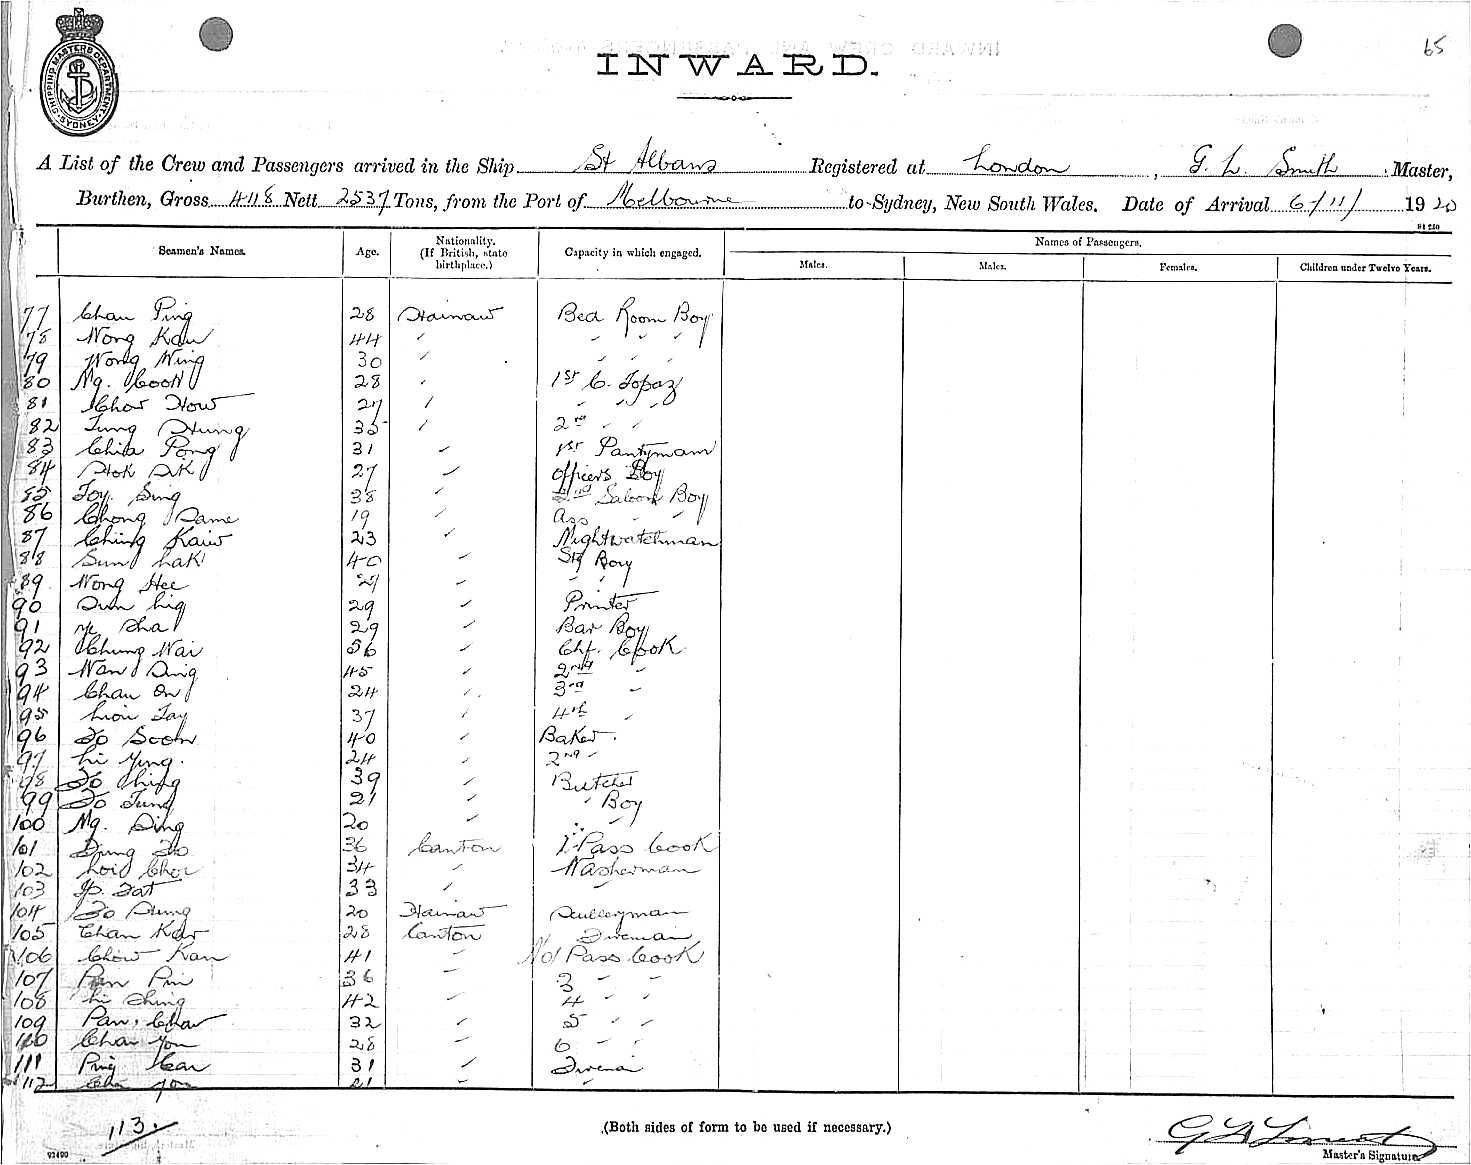 65
SHIPPING MASTERS DEPARTMENT. SYDNEY.
INWARD.
A List of the Crew and Passengers arrived in the Ship St Albans Registered at London, G. L. Smith, Master,
Burthen, Gross 4118 Nett 2537 Tons, from the Port of Melbourne to Sydney, New South Wales. Date of Arrival 6/11/1920
Seamen's Names. Age. Nationality. (If British, state birthplace.) Capacity in which engaged. Names of Passengers.
Males. Males. Females. Children under Twelve Years.
77 Chan Ping 28 Hainaw Bed Room Boy
78 Wong Kaw 44 " " " "
79 Wong Wing 30 " " " "
80 Ng. Cook 28 " 1st C. Topaz
81 Chow How 27 " " " "
82 Tung Hung 35 " 2nd " "
83 Chia Pong 31 " 1st Pantyman
84 Hok Sik 27 " Officers Boy
85 Foy. Sing 38 " 2nd Saloon Boy
86 Chong Same 19 " Ass " "
87 Ching Kaiw 23 " Nightwatchman
88 Sun Lak 40 " Stg Boy
89 Wong Hee 21 " " "
90 Sun Lig 29 " Printer
91 Sha 29 " Bar Boy
92 Chung Wai 36 " Chf. Cook
93 Wan Sing 45 " 2nd "
94 Chan On 24 " 3rd "
95 Lion Tay 37 " 4th "
96 Fo Soon 40 " Baker.
97 Li Ying. 24 " 2nd "
98 Fo Ching 39 " Butcher
99 Fo Tung 21 " " Boy
100 Ng. Sing 20 " "
101 Fo 36 Canton 1 Pass Cook
102 Loie Choi 34 " Washerman
103 Ip. Fat 33 " "
104 Fo Hung 20 Hainaw Sculleryman
105 Chan Kar 28 Canton Fireman
106 Chow Kan 41 " No 1 Pass Cook
107 Pan Pin 36 " 3 " "
108 Li Shing 42 " 4 " "
109 Pan. Chaw 32 " 5 " "
110 Chan You 28 " 6 " "
111 Ping Kan 31 " Firema
112 Cha You 21 " "
113.
(Both sides of form to be used if necessary.)
Master's Signature.